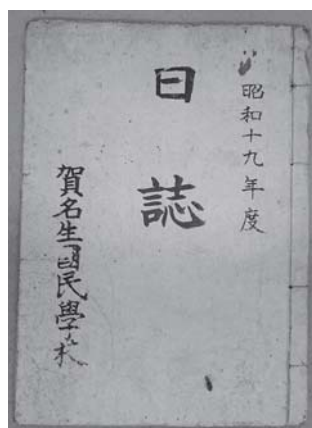 昭和十九年度
日誌
賀名生國民學校